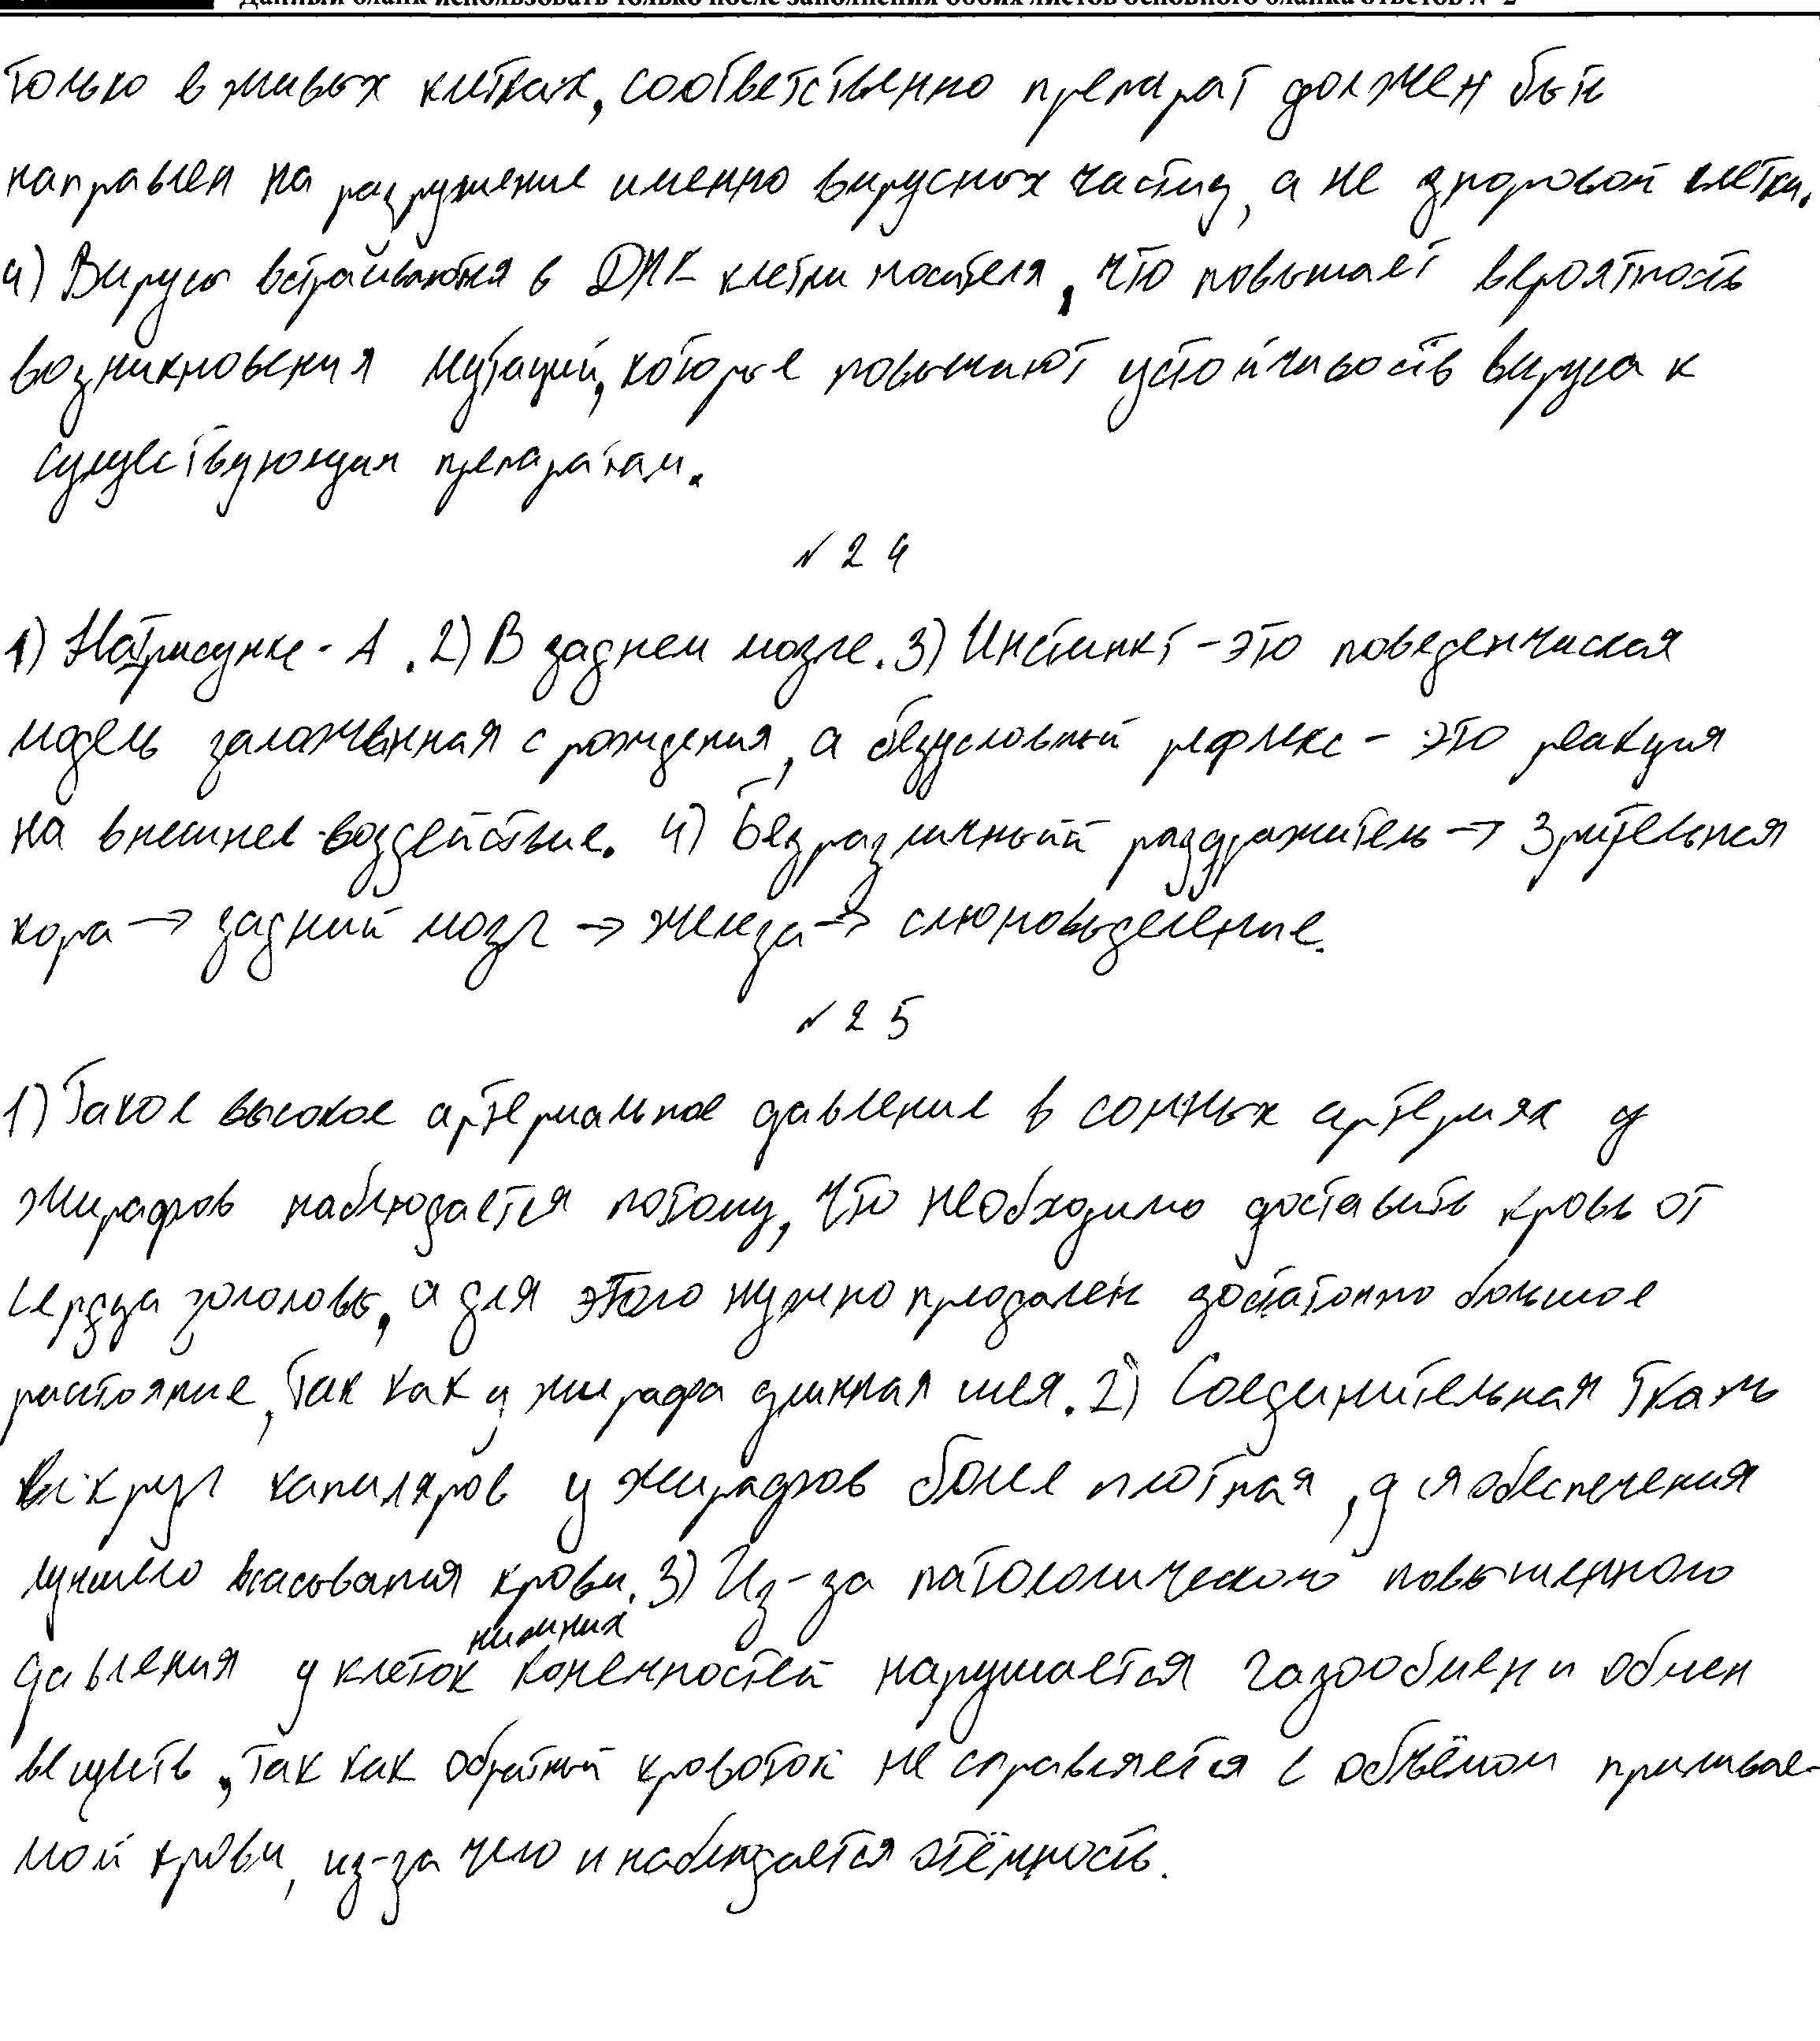 Данный бланк использовать только после заполнения обоих листов основного бланка ответов № 2
только в живых клетках, соответственно препарат должен быть
направлен на разрушение именно вирусных частиц, а не здоровой клетки.
4) Вирусы встраиваются в ДНК клетки носителя, что повышает вероятность
возникновения мутаций, которые повышают устойчивость вируса к
существующим препаратам.
№ 24
1) На рисунке - А. 2) В заднем мозге. 3) Инстинкт - это поведенческая
модель заложенная с рождения, а безусловный рефлекс - это реакция
на внешнее воздействие. 4) Безразличный раздражитель → Зрительная
кора → задний мозг → железа → слюновыделение.
№ 25
1) Такое высокое артериальное давление в сонных артериях у
жирафов наблюдается потому, что необходимо доставить кровь от
сердца до головы, а для этого нужно преодалеть достаточно большое
расстояние, так как у жирафа длинная шея. 2) Соединительная ткань
вокруг капиляров у жирафов более плотная, для обеспечения
лучшего всасывания крови. 3) Из-за патологического повышенного
нижних
давления у клеток конечностей нарушается газообмен и обмен
веществ, так как обратный кровоток не справляется с объёмом приливае-
мой крови, из-за чего и наблюдается отёчность.